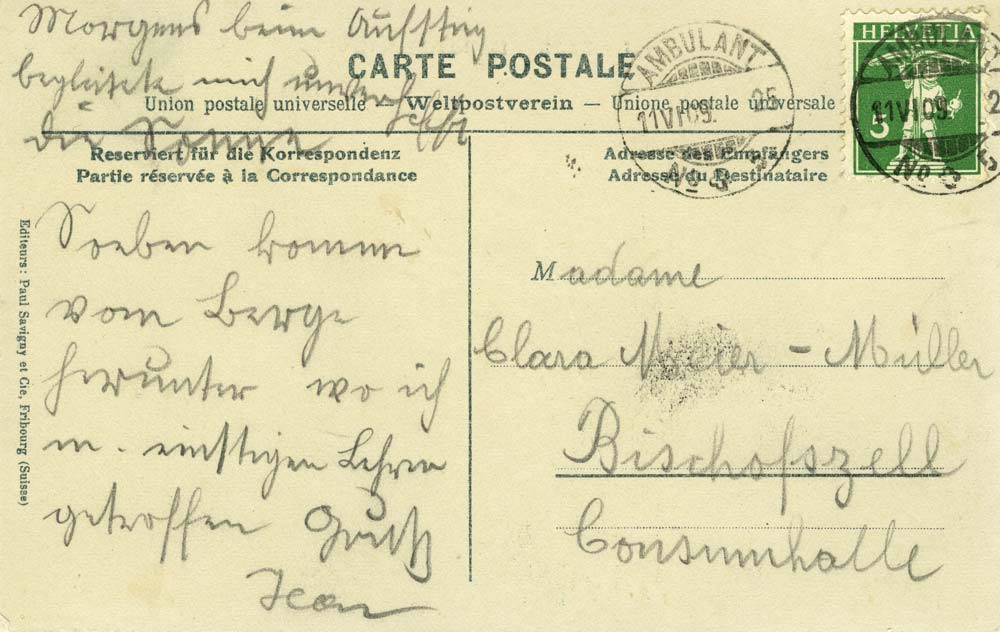 Morgens beim Aufstieg
begleitete mich
die Sonne
CARTE POSTALE
Union postale universelle – Weltpostverein – Unione postale universale
Reserviert für die Korrespondenz
Partie réservée à la Correspondance
Adresse des Empfängers
Adresse du Destinataire
HELVETIA
5
AMBULANT
11 VI 09. 25
No 3
AMBULANT
11 VI 09. 2
No 3
Soeben komme
vom Berge
herunter wo ich
m. einstigen Lehrer
getroffen Gruß
Jean
Madame
Clara Meier-Müller
Bischofszell
Consumhalle
Editeurs: Paul Savigny et Cie, Fribourg (Suisse)